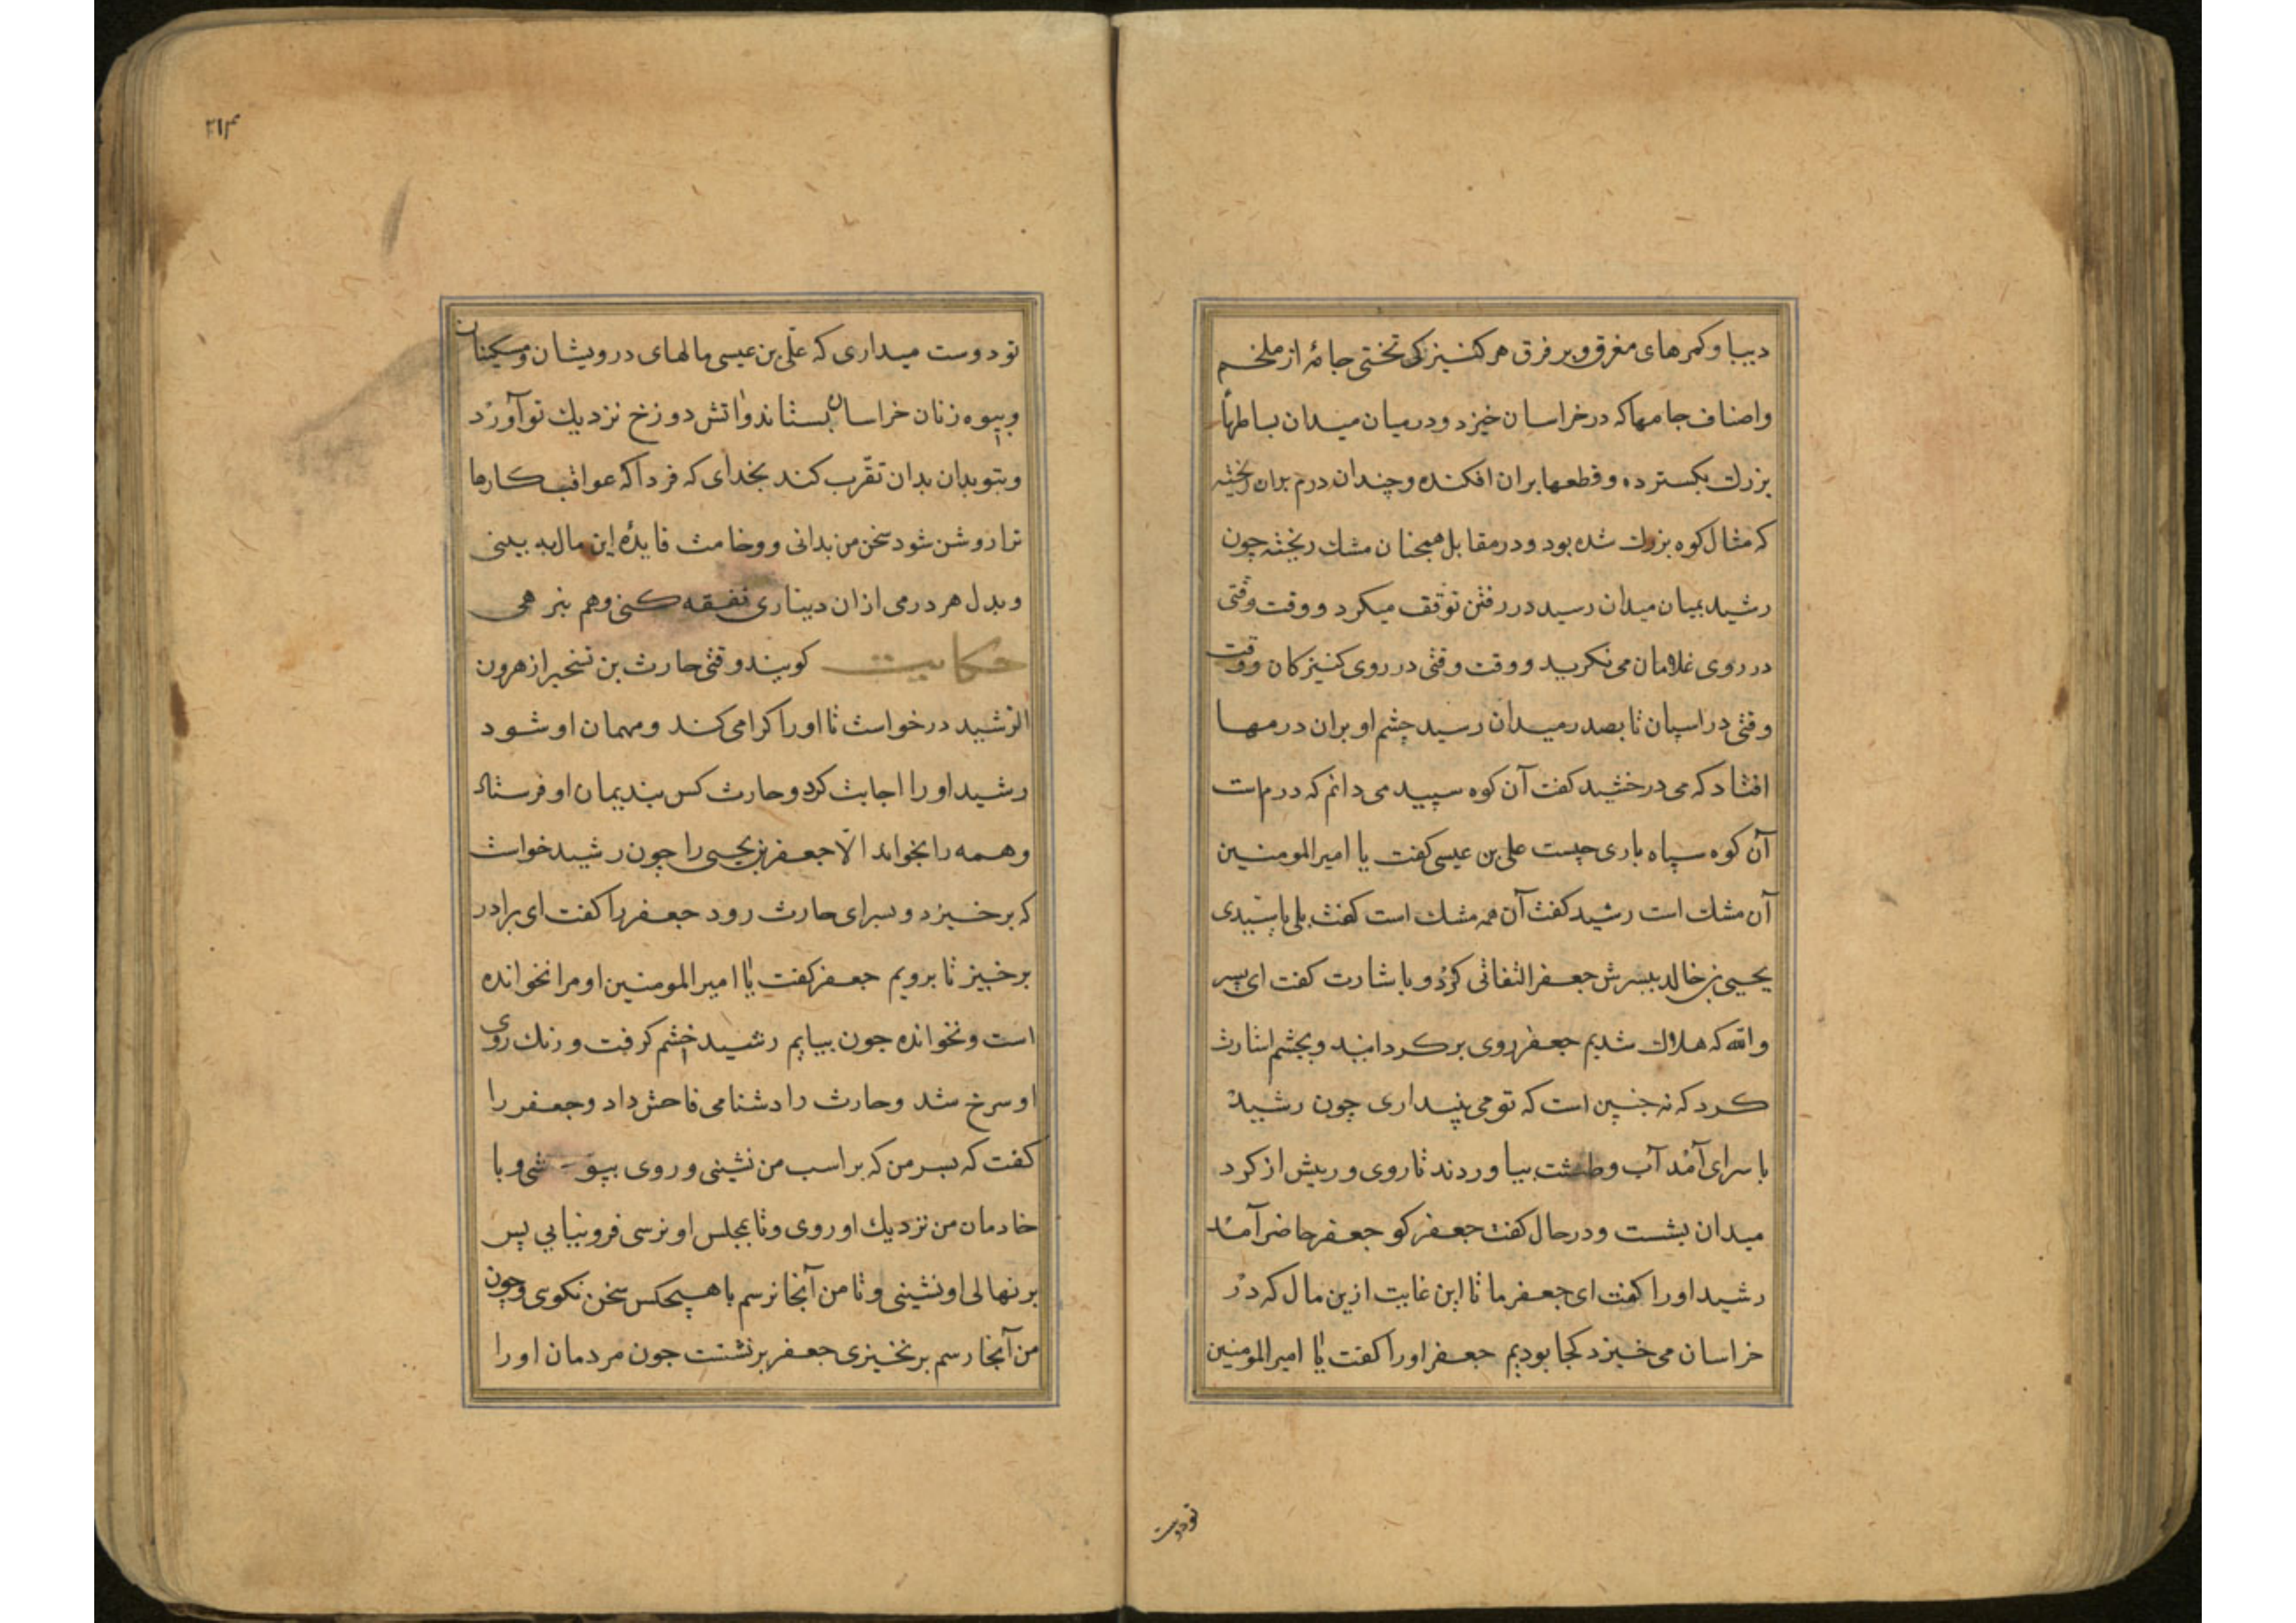 دیبا و کمرهای مغرق و بر فرق هر کنیزکی تختی جامهٔ از ملخم
واصناف جامها که در خراسان خیزد و در میان میدان بساطهأ
بزرك بکسترده و قطعها بران افکنده و چندان درم بران ریخته
که مثال کوه بزرك شده بود و در مقابل همچنان مشك ریخته چون
رشید بمیان میدان رسید در رفتن توقف میکرد و وقت وقتی
در روی غلامان می نکرید و وقت وقتی در روی کنیزکان و وقت
وقتی در اسپان تا بصدر میدان رسید چشم او بران درمها
افتاد که می درخشید کفت آن کوه سپید می دانم که درم است
آن کوه سیاه باری چیست علی بن عیسی کفت یا امیرالمومنین
آن مشك است رشید کفت آن همه مشك است کفت بلی یا سیدی
یحیی بن خالد بپسرش جعفر التفاتی کرد و باشارت کفت ای پسر
والله که هلاك شدیم جعفر روی بر کردانید و بچشم اشارت
کرد که نه چنین است که تو می پنداری چون رشید
با سرای آمد آب و طشت بیاوردند تا روی و ریش از کرد
میدان بشست و در حال کفت جعفر کو جعفر حاضر آمد
رشید او را کفت ای جعفر ما تا این غایت ازین مال که در
خراسان می خیزد کجا بودیم جعفر او را کفت یا امیرالمومنین
تو دوست
۲۱۴
تو دوست میداری که علی بن عیسی مالهای درویشان و مسکینان
و بیوه زنان خراسان بستاند و آتش دوزخ نزدیك تو آورد
و بتو بدان بدان تقرب کند بخدای که فردا که عواقب کارها
ترا روشن شود سخن من بدانی و وخامت فایدهٔ این مال به بینی
و بدل هر درمی ازان دیناری نفقه کنی و هم بنرهی
حکایت کویند وقتی حارث بن تسخیر از هرون
الرشید درخواست تا او را اکرامی کند و مهمان او شود
رشید او را اجابت کرد و حارث کس بندیمان او فرستاد
و همه را بخواند الا جعفر بن یحیی را چون رشید خواست
که برخیزد و بسرای حارث رود جعفر را کفت ای برادر
برخیز تا برویم جعفر کفت یا امیرالمومنین او مرا نخوانده
است و نخوانده چون بیایم رشید خشم کرفت و رنك روی
او سرخ شد و حارث را دشنامی فاحش داد و جعفر را
کفت که بسر من که بر اسب من نشینی و روی بپوشی و با
خادمان من نزدیك او روی و تا بمجلس او نرسی فرو نیایی پس
بر نهالی او نشینی و تا من آنجا نرسم با هیچکس سخن نکوی و چون
من آنجا رسم برنخیزی جعفر برنشست چون مردمان او را